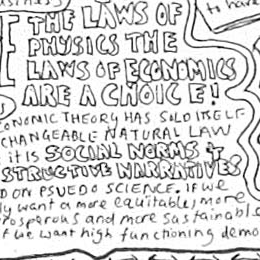 THE LAWS OF
PHYSICS THE
LAWS OF ECONOMICS
ARE A CHOICE!
ONOMIC THEORY HAS SOLD ITSELF
CHANGEABLE NATURAL LAW
it is SOCIAL NORMS &
STRUCTIVE NARRATIVES
D ON PSUEDO SCIENCE. IF WE
ly want a more equitable, more
rosperous and more sustainable
f we want high functioning demo
to have